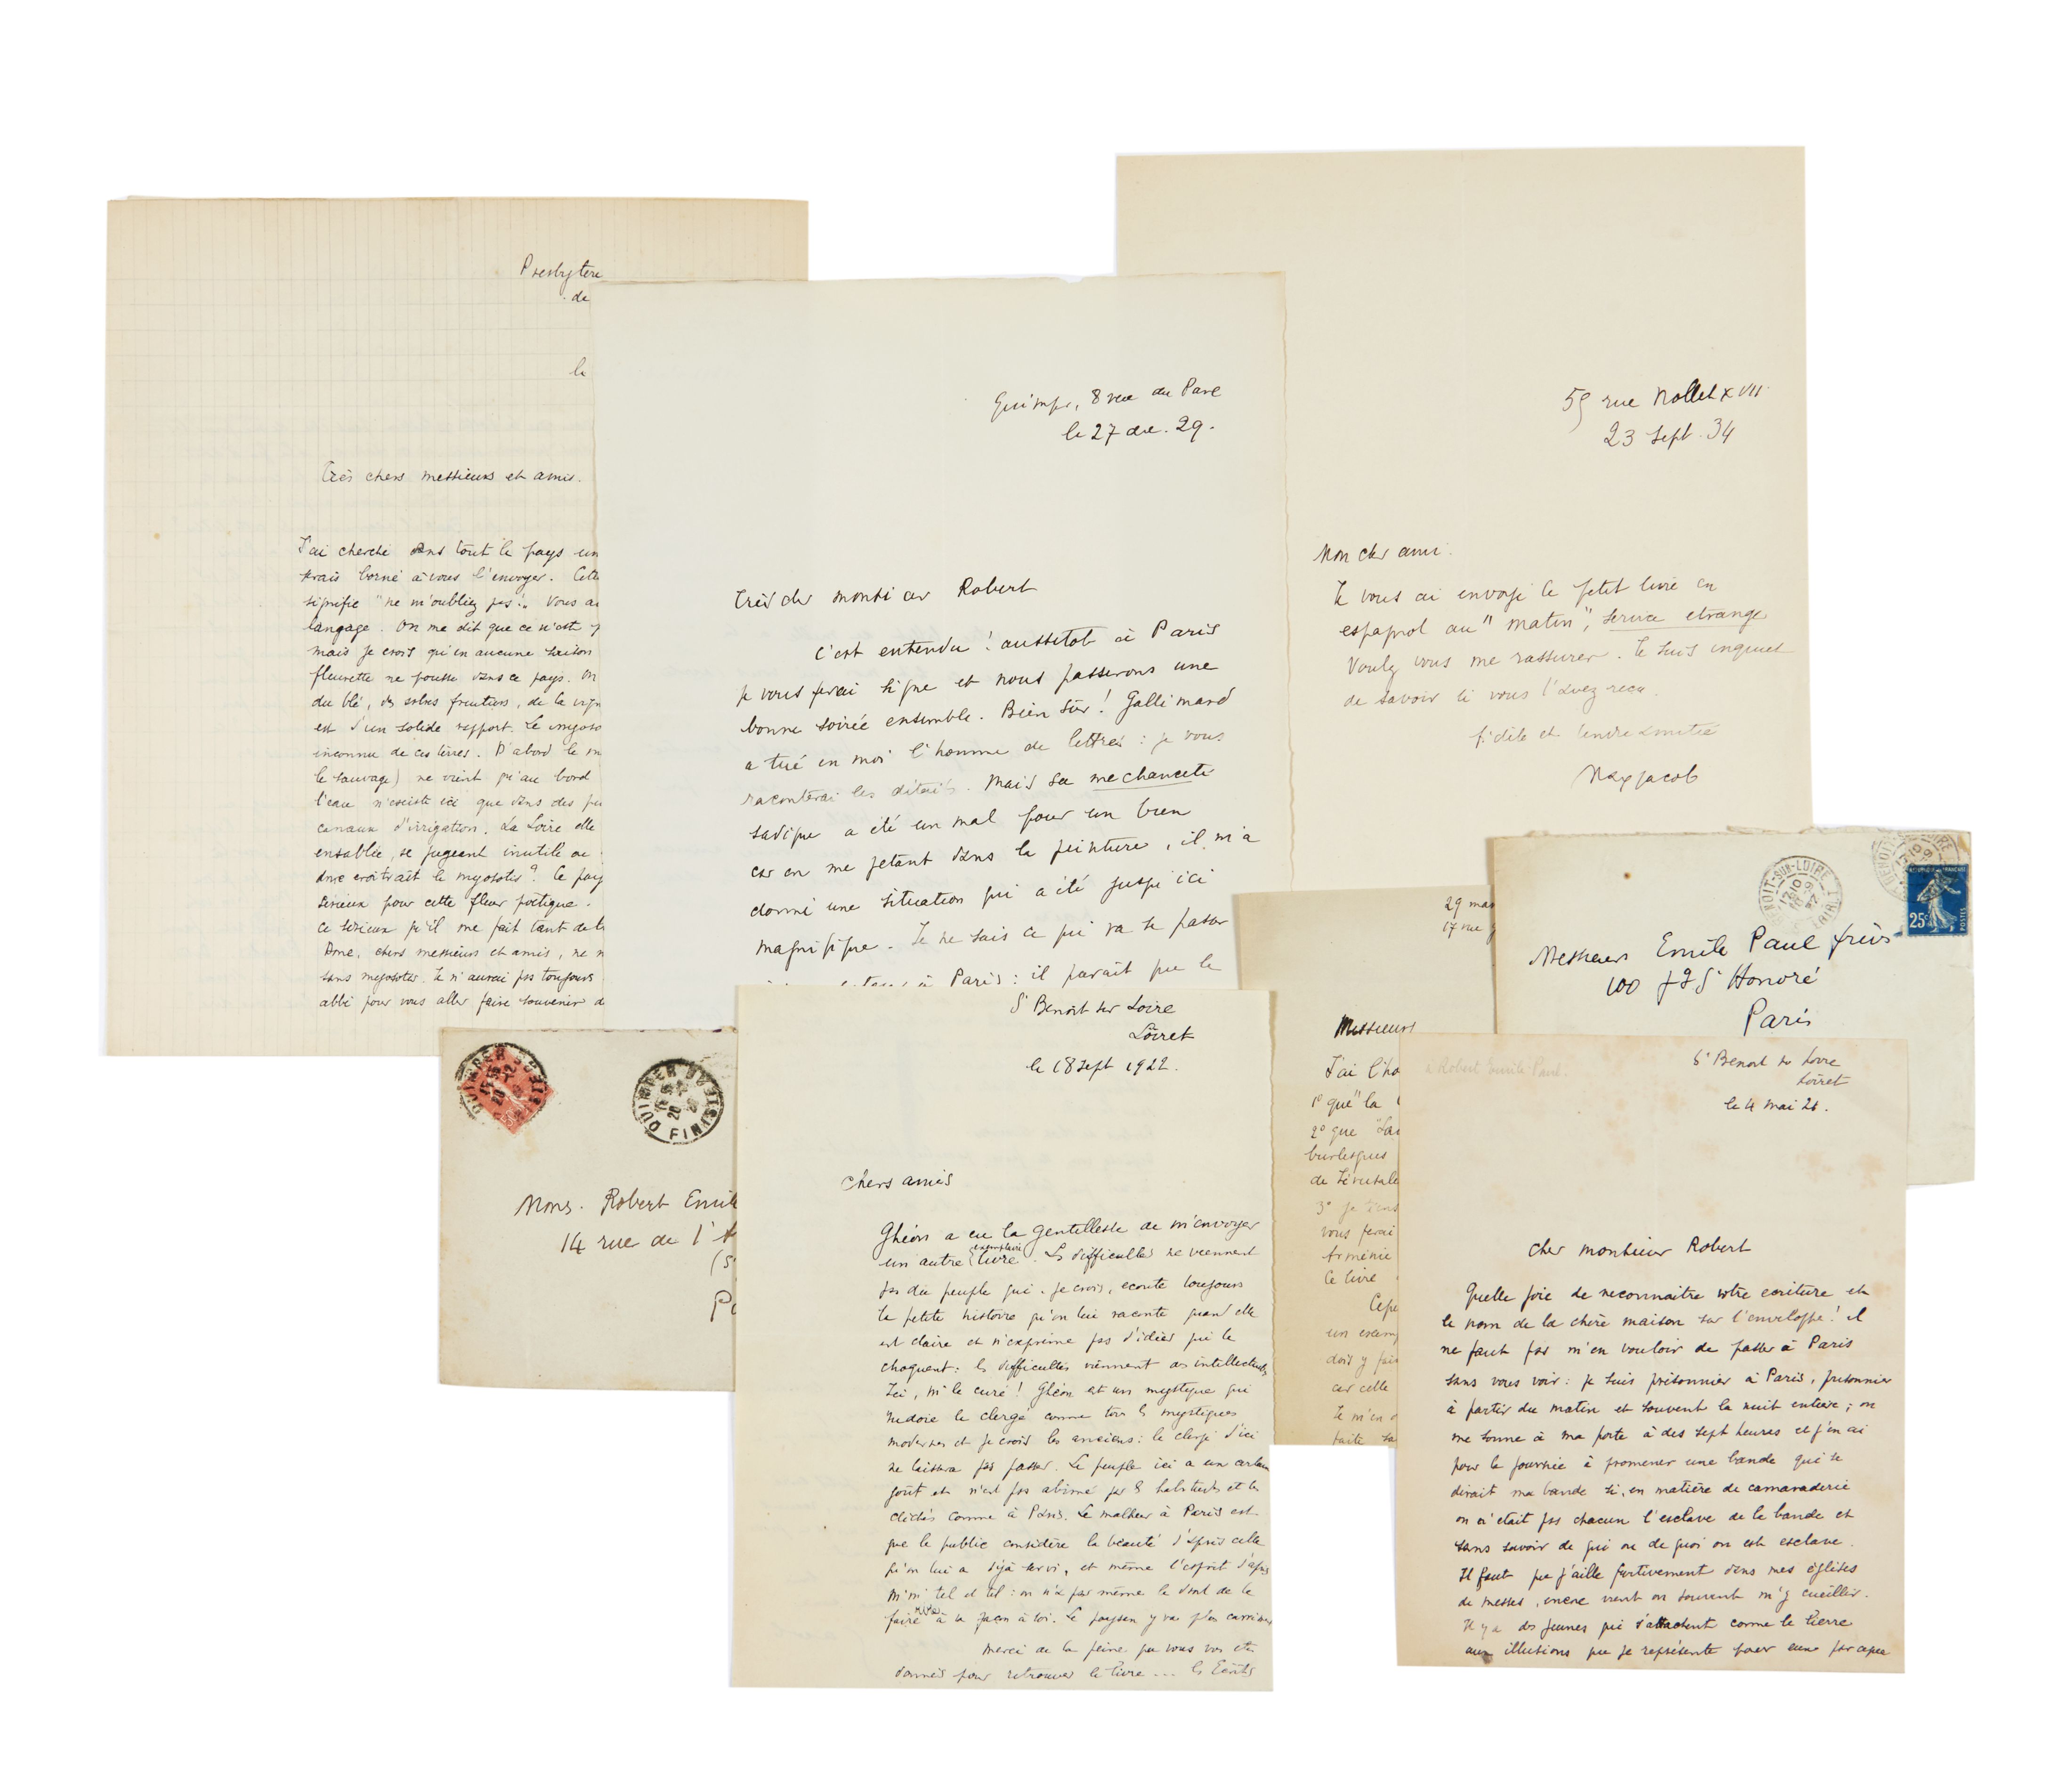 Presbytère
de
le
Très chers messieurs et amis.
J'ai cherché dans tout le pays un
serais borné à vous l'envoyer. Cette
signifie "ne m'oubliez pas". Vous a
langage. On me dit que ce n'est p
mais je crois qu'en aucune saison
fleurette ne pousse dans ce pays. On
du blé, des arbres fruitiers, de la vign
est d'un solide rapport. Le myoso
inconnu de ces terres. D'abord le m
le sauvage) ne vient qu'au bord
l'eau n'existe ici que dans des pe
canaux d'irrigation. La Loire elle
ensablée, se jugeant inutile ou
donc croîtrait le myosotis? Ce pays
sérieux pour cette fleur poétique.
ce sérieux qu'il me fait tant de
Donc, chers messieurs et amis, ne m
sans myosotis. Je n'aurai pas toujours
abbé pour vous aller faire souvenir d
Quimper, 8 rue du Parc
le 27 dec. 29.
Très cher monsieur Robert
C'est entendu! aussitôt à Paris
je vous ferai signe et nous passerons une
bonne soirée ensemble. Bien sûr! Gallimard
a tué en moi l'homme de lettres: je vous
raconterai les détails. Mais sa mechanceté
sadique a été un mal pour un bien
car en me jetant dans la peinture, il m'a
donné une situation qui a été jusqu'ici
magnifique. Je ne sais ce qui va se passer
à Paris: il paraît que le
55 rue Nollet XVII
23 Sept. 34
Mon cher ami.
Je vous ai envoyé le petit livre en
espagnol au "Matin", service etranger
Voulez vous me rassurer. Je suis inquiet
de savoir si vous l'avez reçu.
fidèle et tendre amitié
Max Jacob
BENOIT-SUR-LOIRE
25c
POSTES
Messieurs Emile Paul frères
100 fg St Honoré
Paris
29 mar
17 rue
Messieurs
J'ai l'ho
1° que "la
2° que "La
burlesques
de Jérusale
3° je tiens
vous ferai
Arménie
Ce livre
Cepe
un exemp
dois y fai
car celle
Je m'en
faite sa
QUIMPER
FINISTERE
QUIMPER
FINISTERE
Mons. Robert Emile
14 rue de l'A
(S
Pa
St Benoit sur Loire
Loiret
le 18 sept 1922.
Chers amis
Ghéon a eu la gentillesse de m'envoyer
un autre exemplaire livre. Les difficultés ne viennent
pas du peuple qui, je crois, ecoute toujours
la petite histoire qu'on lui raconte quand elle
est claire et n'exprime pas d'idées qui le
choquent: les difficultés viennent des intellectuels
Ici, Mr le curé! Ghéon est un mystique qui
rudoie le clergé comme tous les mystiques
modernes et je crois les anciens: le clergé d'ici
ne laissera pas passer. Le peuple ici a un certain
goût et n'est pas abimé par les habitudes et les
clichés comme à Paris. Le malheur à Paris est
que le public considère la beauté d'après celle
qu'on lui a déjà servi, et même l'esprit d'après
Mr Mr tel et tel: on n'a pas même le droit de le
faire rire à sa façon à soi. Le paysan y va plus carrément
Merci de la peine que vous vous etes
donnés pour retrouver le livre... les Ecrits
à Robert Emile-Paul.
St Benoit sur Loire
Loiret
le 4 mai 26.
Cher monsieur Robert
Quelle joie de reconnaitre votre ecriture et
le nom de la chère maison sur l'enveloppe! il
ne faut pas m'en vouloir de passer à Paris
sans vous voir: je suis prisonnier à Paris, prisonnier
à partir du matin et souvent la nuit entière; on
me sonne à ma porte à des sept heures et j'en ai
pour la journée à promener une bande qui se
dirait ma bande si, en matière de camaraderie
on n'etait pas chacun l'esclave de la bande et
sans savoir de qui ou de quoi on est esclave.
Il faut que j'aille furtivement dans mes églises
de messes, encore vient on souvent m'y cueillir.
Il y a des jeunes qui s'attachent comme le lierre
aux illusions que je représente pour eux parceque